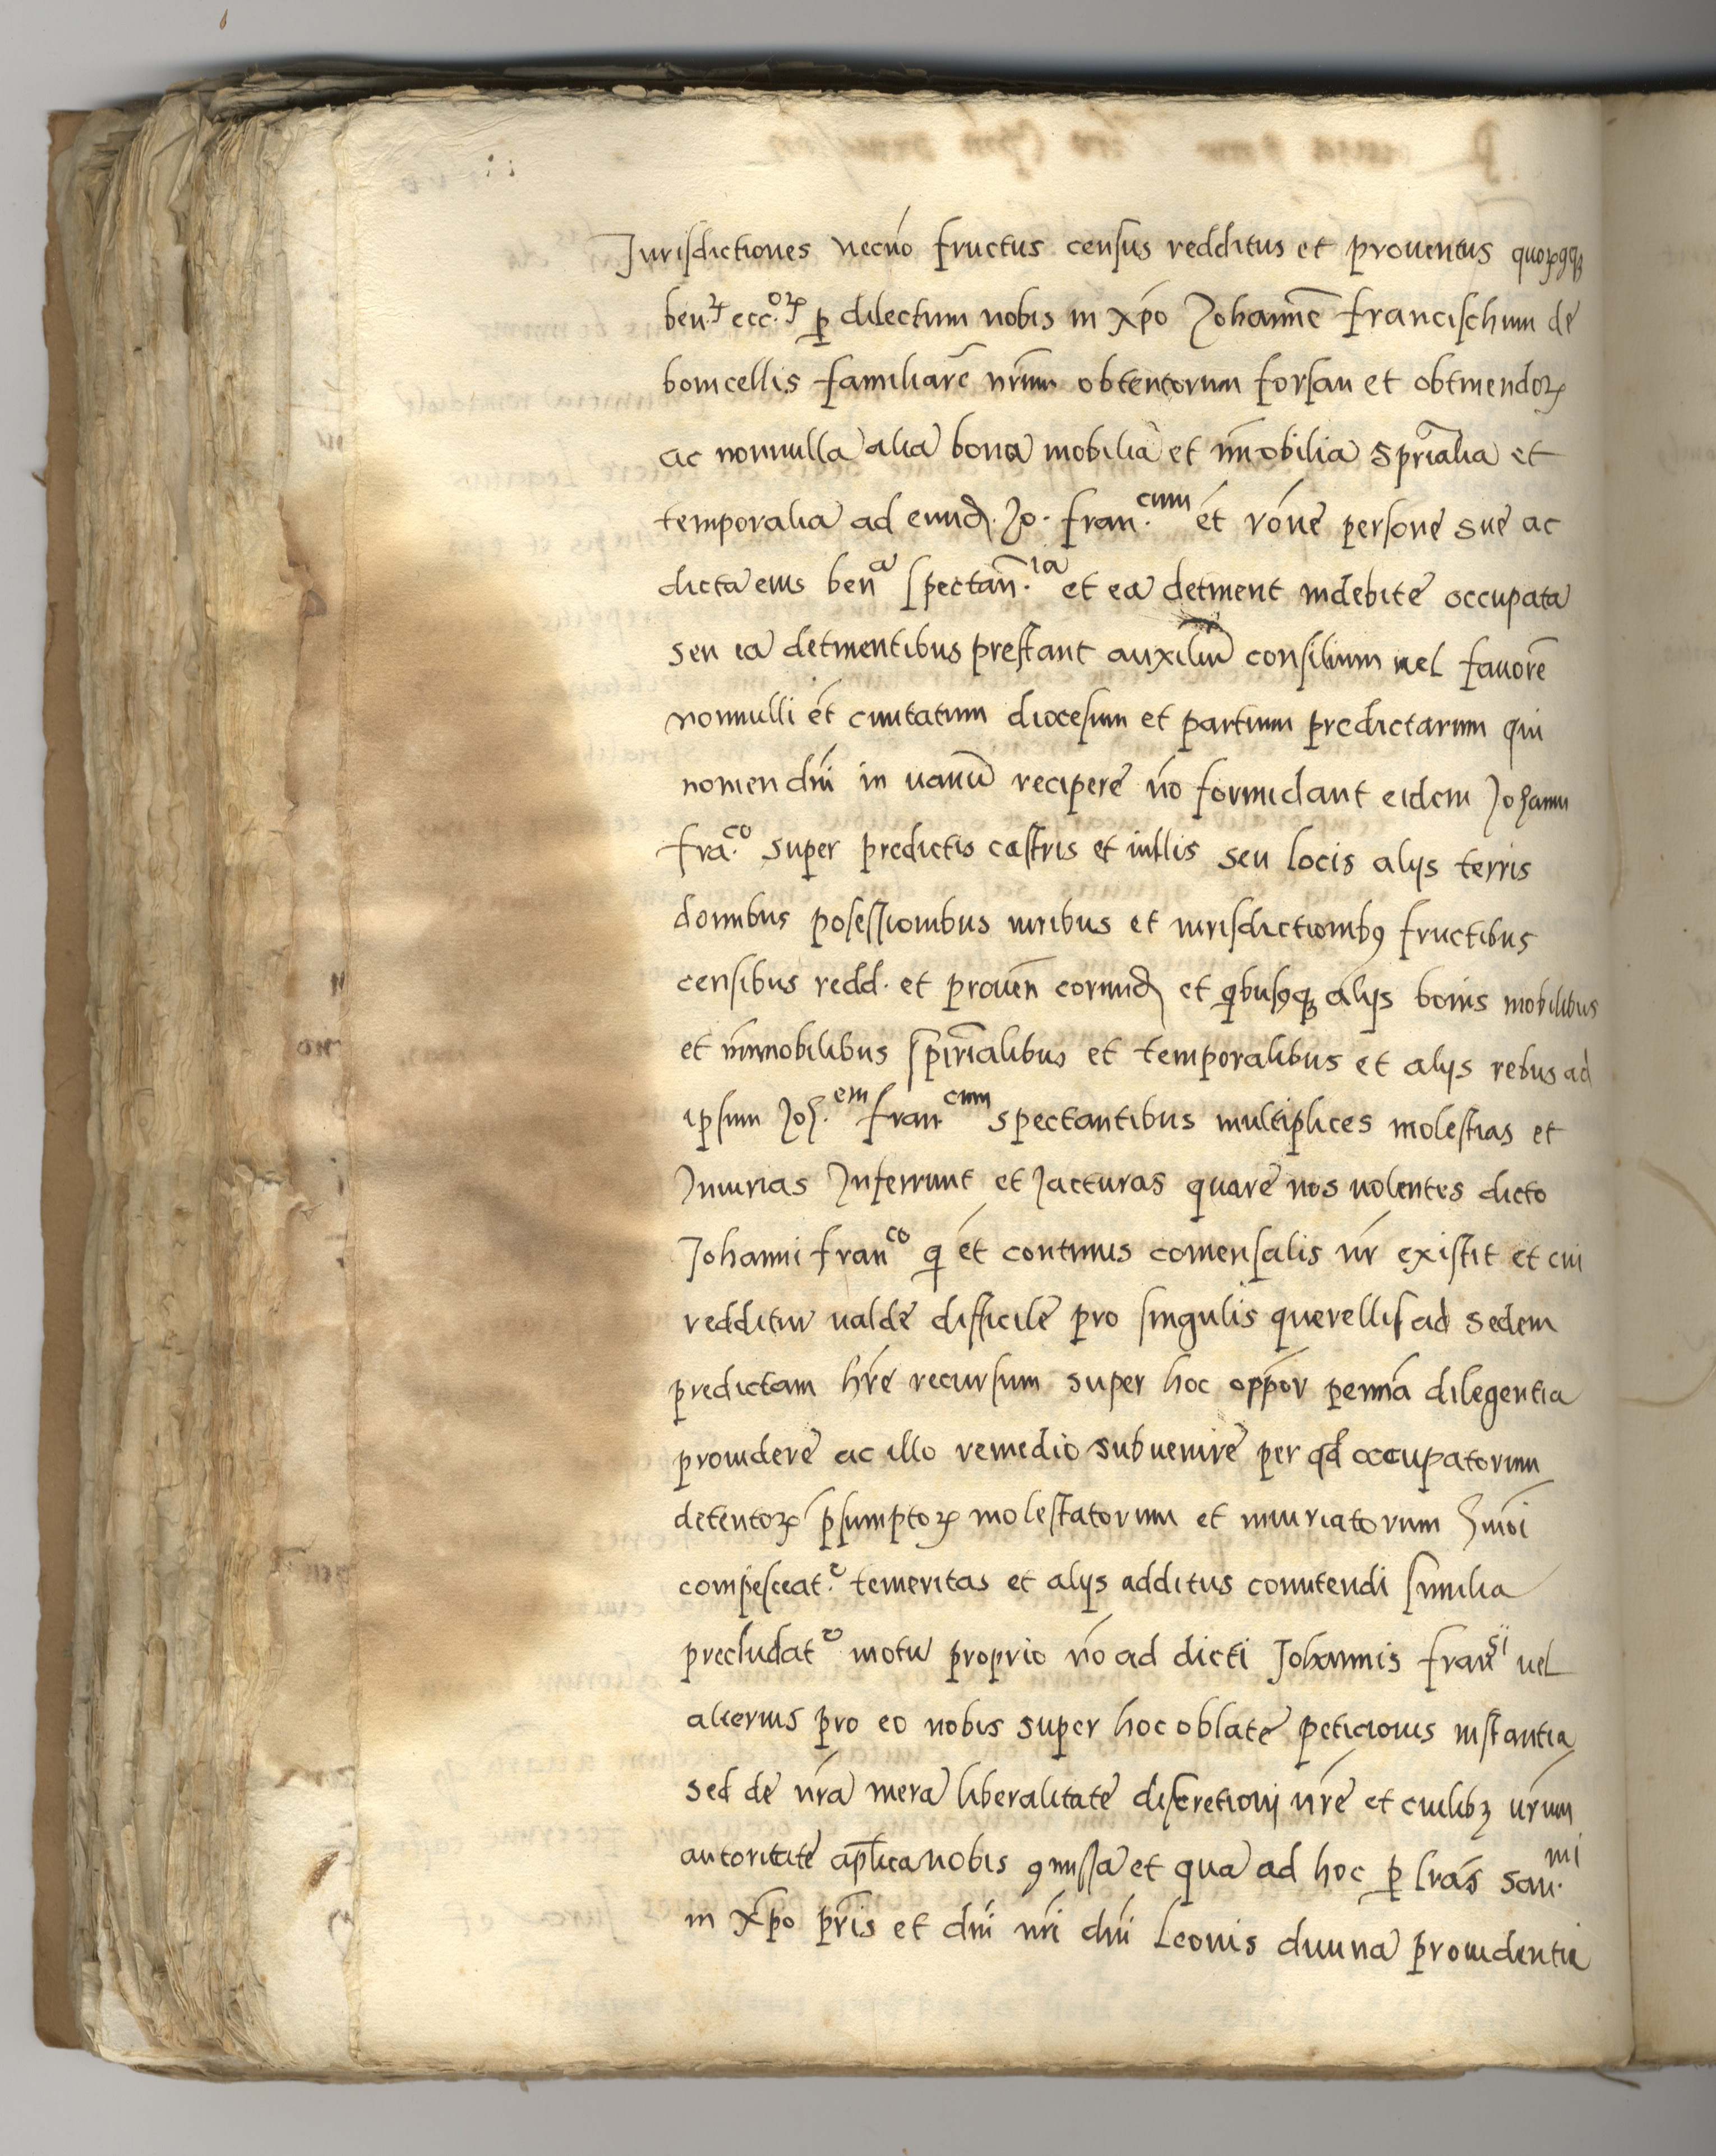 Jurisdictiones necnō fructus census redditus et prouentus quoꝝcūqꝫ
ben.ꝝ ecc.oꝝ ꝑ dilectum nobis in xp̄o Johannē francischum de
bonicellis familiarē nr̄um obtentorum forsan et obtinendoꝝ
ac nonnulla alia bona mobilia et īmobilia spr̄ialia et
temporalia ad eund. Jo. fran.cum et rōne persone sue ac
dicta eius bena spectan.ia et ea detinent indebite occupata
seu ea detinentibus prestant auxiliū consilium uel fauorē
nonnulli ēt ciuitatum diocesum et partium predictarum qui
nomen dn̄i in uanū recipere nō formidant eidem Johanni
fra.co super predictis castris et uillis seu locis alijs terris
domibus posessionibus iuribus et iurisdictionibꝰ fructibus
censibus redd. et prouen̄ eorund et qibusꝯqꝫ alijs bonis mobilibus
et īmmobilibus spīrialibus et temporalibus et alijs rebus ad
ipsum Joh.em fran.cum spectantibus multiplices molestias et
Iniurias Inferrunt et Jacturas quare nos uolentes dicto
Johanni franco q ēt continuus comensalis nr̄ existit et cui
redditur ualde difficile pro singulis querellis ad sedem
predictam hr̄e recursum super hoc oppōr pernnā dilegentia
prouidere ac illo remedio subuenire per qd occupatorum
detentoꝝ p̄sumptoꝝ molestatorum et iniuriatorum hmōi
compesceat.e temeritas et alijs additus comittendi similia
precludate motu proprio nō ad dicti Johannis fransi uel
alterius pro eo nobis super hoc oblate peticionis instantia
sed de nr̄a mera liberalitate discretionj ur̄e et cuilibꝫ ur̄um
autoritate aplica nobis ꝯmissa et qua ad hoc ꝑ lr̄as san.mi
in xp̄o pr̄is et dn̄i nr̄i dn̄i Leonis diuina prouidentia